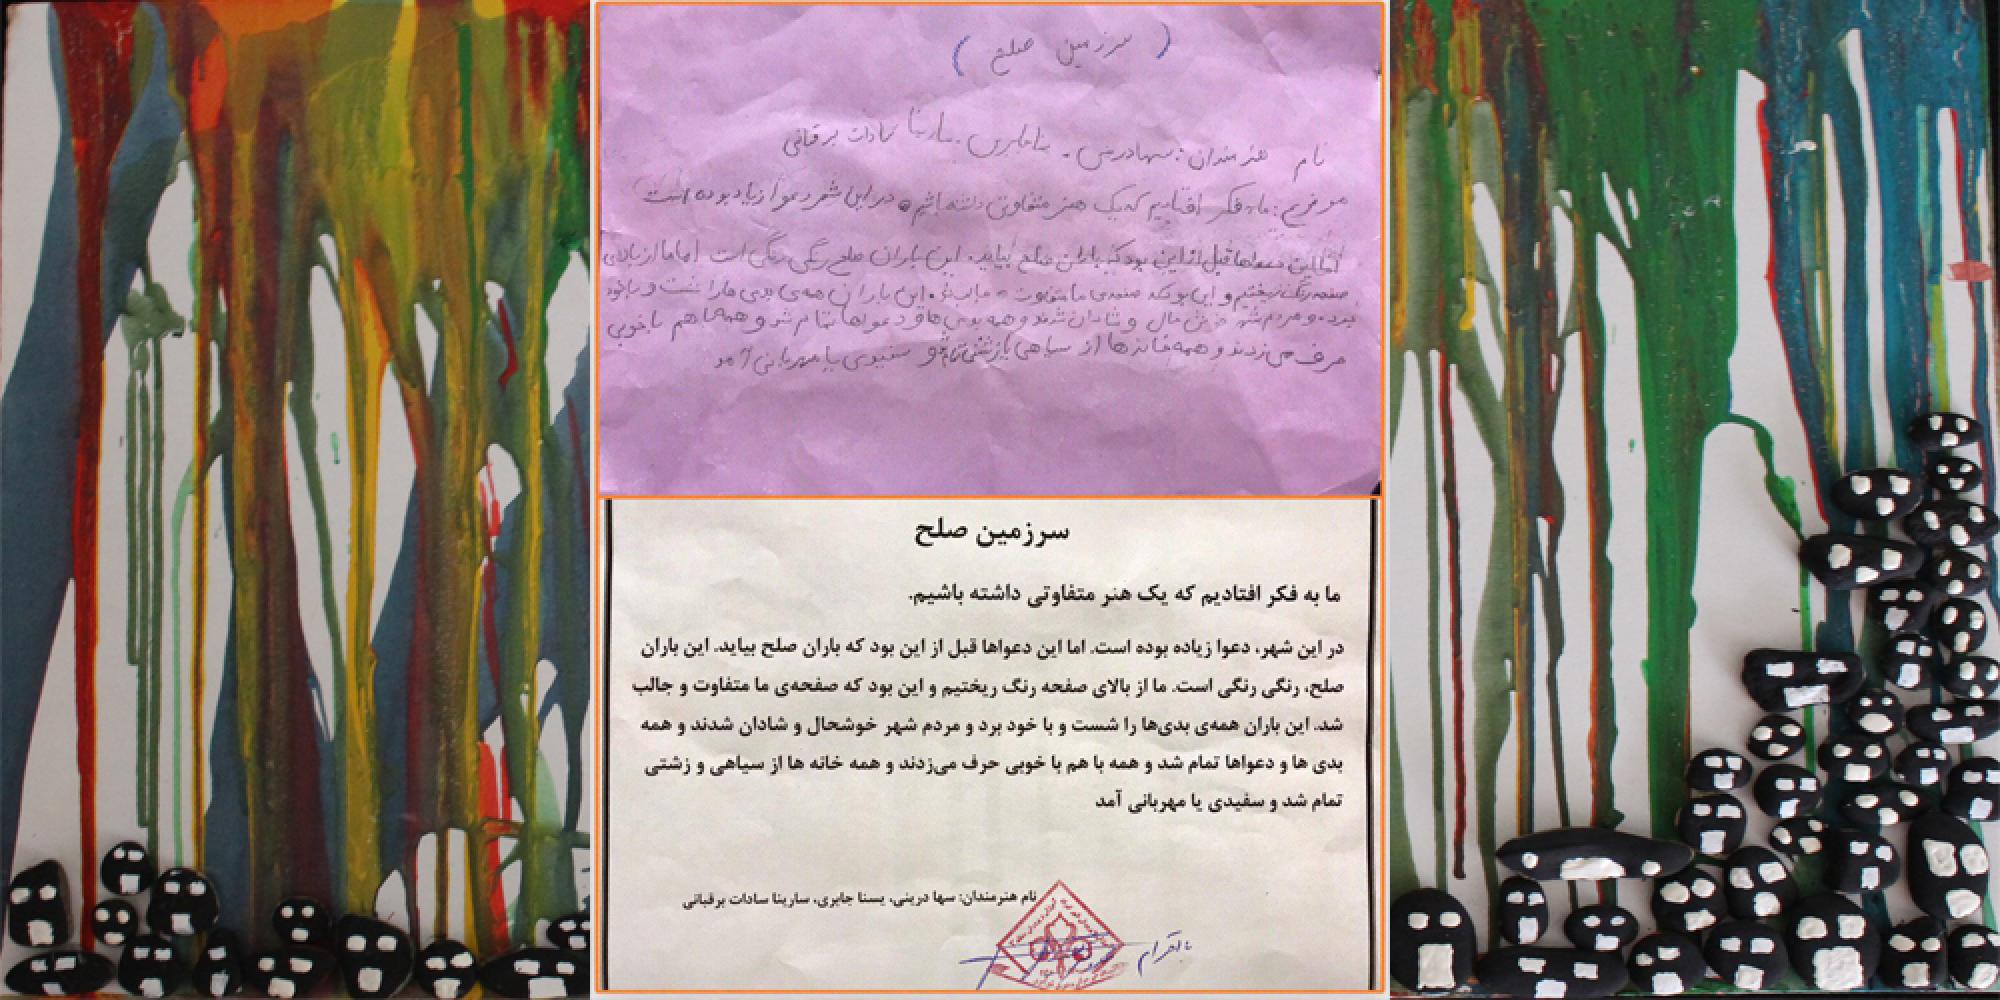 ( سرزمین صلح )
نام هنرمندان: سها درینی، یسنا جابری، سارینا سادات برقبانی
ما به فکر افتادیم که یک هنر متفاوتی داشته باشیم در این شهر دعوا زیاد بوده است
اما این دعواها قبل از این بود که باران صلح بیاید. این باران صلح رنگی رنگی است اما ما از بالای
صفحه رنگ ریختیم و این بود که صفحه‌ی ما متفاوت شد. این باران همه‌ی بدی ها را شست و با خود
برد و مردم شهر خوش حال و شادان شدند و همه بدی ها و دعواها تمام شد و همه با هم با خوبی
حرف می‌زدند و همه خانه‌ها از سیاهی و زشتی تمام شد و سفیدی یا مهربانی آمد
سرزمین صلح
ما به فکر افتادیم که یک هنر متفاوتی داشته باشیم.
در این شهر، دعوا زیاده بوده است. اما این دعواها قبل از این بود که باران صلح بیاید. این باران
صلح، رنگی رنگی است. ما از بالای صفحه رنگ ریختیم و این بود که صفحه‌ی ما متفاوت و جالب
شد. این باران همه‌ی بدی‌ها را شست و با خود برد و مردم شهر خوشحال و شادان شدند و همه
بدی ها و دعواها تمام شد و همه با هم با خوبی حرف می‌زدند و همه خانه ها از سیاهی و زشتی
تمام شد و سفیدی یا مهربانی آمد
نام هنرمندان: سها درینی، یسنا جابری، سارینا سادات برقبانی
با احترام